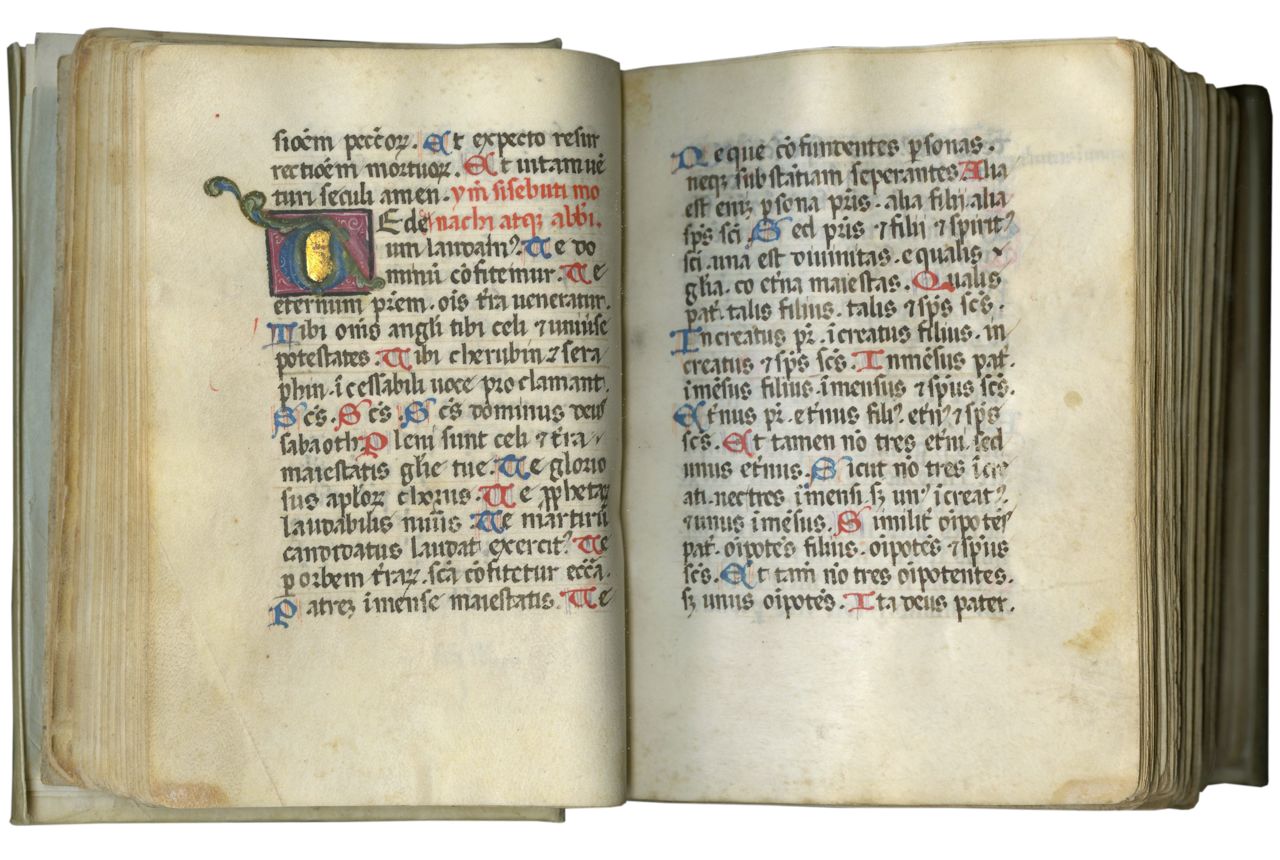 sioēm peccōꝝ. Et expecto resur
rectioēm mortuoꝝ. Et uitam uē
turi seculi amen. ym̄ sisebuti mo
TE de nachi atqꝫ abb̄i.
um laudamꝰ. Te do
minū cōfitemur. Te
eternum p̄rem. oīs t̄ra ueneratur.
Tibi om̄s angl̄i tibi celi ⁊ uniuīse
potestates. Tibi cherubin ⁊ sera
phin. īcessabili uoce proclamant.
Sc̄s. Sc̄s. Sc̄s dominus deus
sabaoth Pleni sunt celi ⁊ t̄ra
maiestatis gl̄ie tue. Te glorio
sus apl̄oꝝ chorus. Te ꝓphetaꝝ
laudabilis num̄s. Te martirū
candidatus laudat exercitꝰ. Te
ꝑ orbem t̄raꝝ. sc̄a cōfitetur ecc̄a.
Patreꝫ īmense maiestatis. Te
Neque cōfundentes ꝑsonas.
neqꝫ substātiam seperantes Alia
est eniꝫ ꝑsona p̄ris. alia filii alia
sp̄s sc̄i Sed p̄ris ⁊ filii ⁊ spiritꝰ
sc̄i. una est diuinitas. equalis
gl̄ia. co et̄na maiestas. Qualis
pat̄. talis filius. talis ⁊ sp̄s sc̄s.
Increatus pr̄. īcreatus filius. in
creatus ⁊ sp̄s sc̄s. Inmēsus pat̄.
īmēsus filius. īmensus ⁊ sp̄us sc̄s.
Et̄nus pr̄. et̄nus filiꝰ. et̄nꝰ ⁊ sp̄s
sc̄s. Et tamen nō tres et̄ni. sed
unus et̄nus. Sicut nō tres īcre
ati. nec tres īmensi sꝫ unꝰ īcreatꝰ.
⁊ unus īmēsus. Similit̄ oīpotēs
pat̄. oīpotēs filius. oīpotēs ⁊ sp̄us
sc̄s. Et tam̄ nō tres oīpotentes.
sꝫ unus oīpotēs. Ita deus pater.